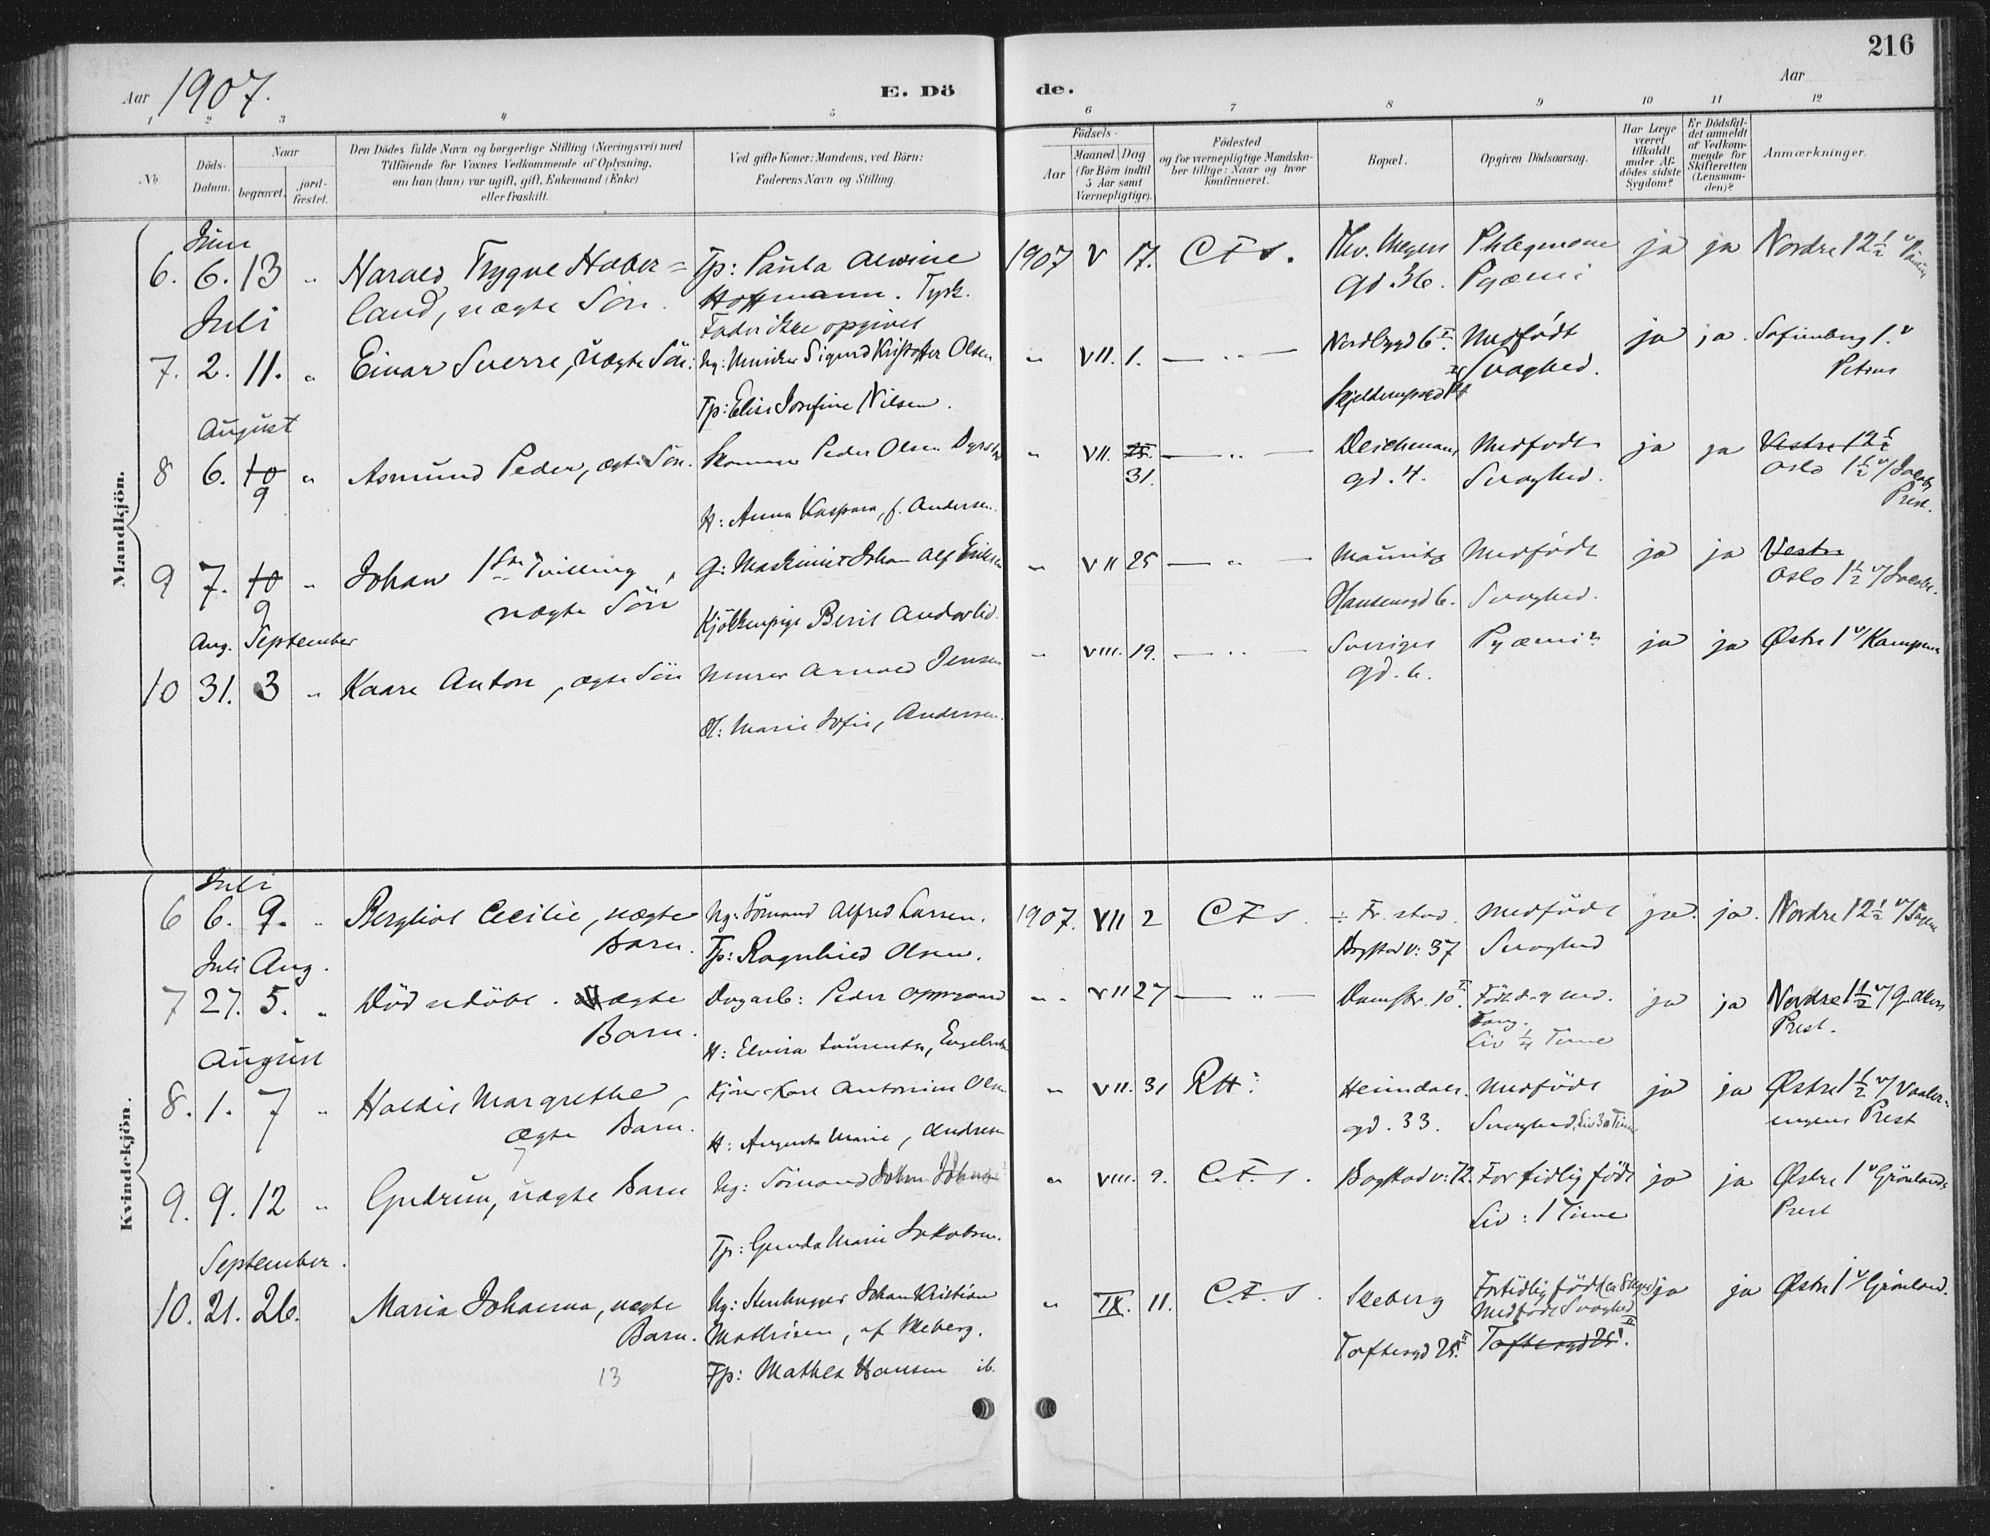 216
Aar 1907.
E. Döde.
Aar
1 2 3 4 5 6 7 8 9 10 11 12
No
Döds-Datum.
Naar
begravet.
jordfæstet.
Den Dödes fulde Navn og borgerlige Stilling (Næringsvei) med
Tilföiende for Voxnes Vedkommende af Oplysning,
om han (hun) var ugift, gift, Enkemand (Enke)
eller fraskilt.
Ved gifte Koner: Mandens, ved Börn:
Faderens Navn og Stilling.
Födsels-
Aar
Maaned Dag
(for Börn indtil
5 Aar samt
Værnepligtige).
Födested
og for værnepligtige Mandskaber tillige: Naar og hvor
konfirmeret.
Bopæl.
Opgiven Dödsaarsag.
Har Læge
været
tilkaldt
under Afdödes sidste
Sygdom?
Er Dödsfaldet anmeldt
af Vedkommende for
Skifteretten
(Lensmanden)?
Anmærkninger.
Mandkjön.
Juni
6. 6. 13 " Harald Trygve Haberland, uægte Sön. Tp: Paula Alwine 1907 V 17. C F S. Thv. Meyers Phlegmone ja ja Nordre 12 1/2
Hoffmann. Tysk. gd. 36. Pyæmi
Fader ikke opgivet
Juli
7. 2. 11. " Einar Sverre, uægte Sön. Ug: Sigurd Kristoffer Olsen " VII. 1. — " — Nordbygd 6 I. Medfödt ja ja. Sofienberg 1. v
Svaghed. Petrus
Tp: Elise Josefine Nilsen.
August
8 6. 10 " Asmund Peder, ægte Sön. Peder Olsen " VII. 25. — " — Deichmans Medfödt ja ja Vestre 12 1/2
9 31. gd. 4. Svaghed. Oslo 1 1/2 v/Jacobs
Prest.
H: Anna Kaspara, f. Andersen.
9 7. 10 " Johan 1ste Tvilling, G: Maskinist Johan Alf Eriksen " VII 25 — " — Mauritz Medfödt ja ja Vestre
9 uægte Sön Oslo 1 1/2 v/Jacobs.
Kjökkenpige Berit Hansensgd 6. Svaghed.
Aug. September
10 31. 3 " Kaare Anton, ægte Sön Murer Arnold Jensen " VIII. 19. — " — Sveriges Pyæmi ja ja Østre 1 v/Kampens
gd. 6.
H: Marie Sofie, Andersen.
Kvindekjön.
Juli
6 6. 9. " Bergliot Cecilie, uægte Ug: Sömand Alfred Larsen. 1907. VII 2 C F S. Fr. stad. Medfödt ja. ja. Nordre 12 1/2 v/
Barn. Tp: Ragnhild Olsen. Bogstadv: 37 Svaghed
Juli Aug.
7 27. 5. " Död udöbt. Uægte Dagarb: Peder " VII 27 — " — Damstr. 10 I. Födt d. g. med. ja ja Nordre 1 1/2 v/G. Akers
Barn. Tang. Prest.
Liv 1/4 Time
August
8. 1. 7 " Haldis Margrethe, Karl Antonius Olsen " VII. 31 RH: Heimdals Medfödt ja ja Østre 1 1/2 v/Vaaler-
ægte Barn. gd. 33. Svaghed, engens Prest
H: Augusta Marie, Andresen
9. 9. 12 " Gudrun, uægte Barn Ug: Sömand John " VIII. 9. C. F. S. Bogstadv: 72. For tidlig födt ja ja Østre 1 v Grönlands
Liv: 1 Time Prest
Tp: Gunda Marie Jakobsen.
September.
10. 21. 26. Maria Johanna, uægte Ug: Stenhugger Johan Kristian " IX. 11. C. F. S. Skeberg Fortidlig födt ja ja Østre 1 v/Grönland.
Barn. Mathisen, af Skeberg. Medfödt Svaghed
Toftesgd 25 II. Toftesgd 25.
13 Fp: Mathea Hansen ib.